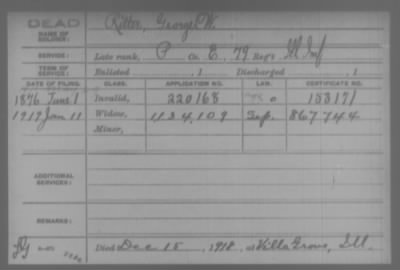 DEAD
NAME OF SOLDIER: Ritter, George W.
SERVICE: Late rank, P Co. E, 79 Reg't Ill Inf
TERM OF SERVICE: Enlisted , 1 Discharged , 1
DATE OF FILING. CLASS. APPLICATION NO. LAW. CERTIFICATE NO.
1876 June 1 Invalid, 220168 153171
1919 Jan 11 Widow, 1134,109 867744
Minor,
ADDITIONAL SERVICES:
REMARKS:
Died Dec 15, 1918, at Villa Grove, Ill.